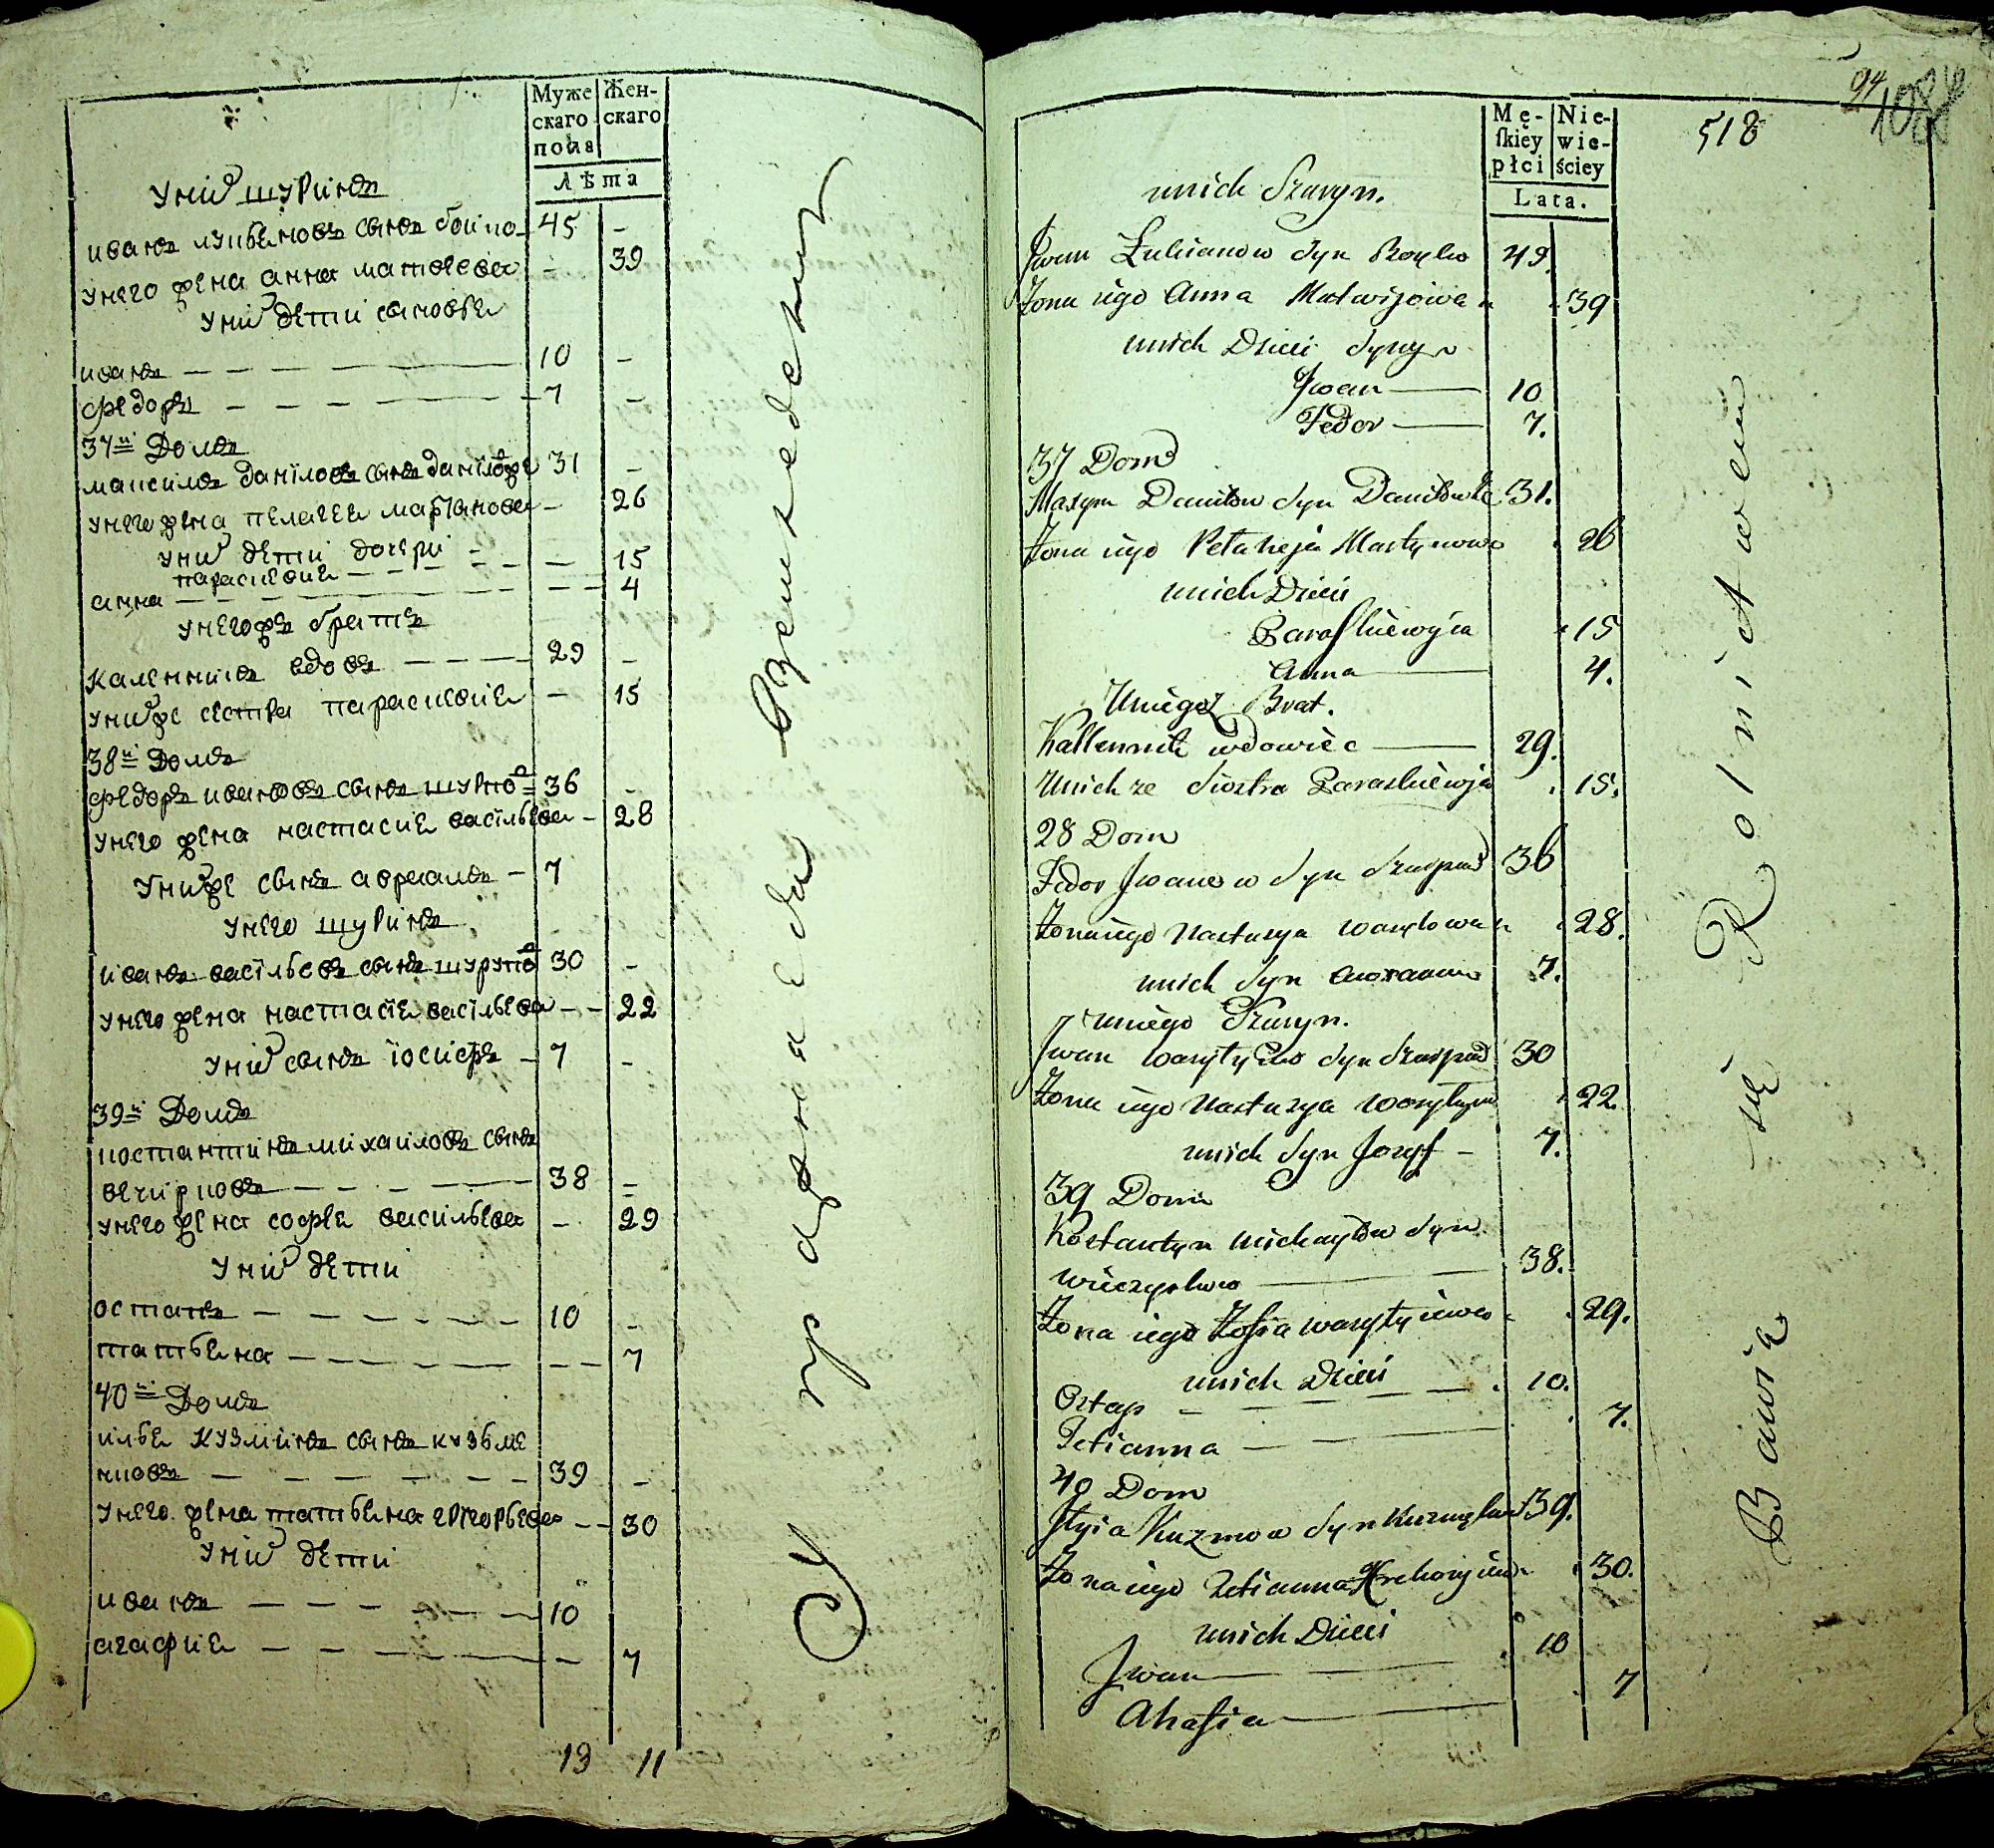 Муже Жен-
скаго скаго
пола
Лѣта
у них шуринъ
иванъ лукьяновъ сынъ бойко 45 -
у него жена анна матвеева - 39
у них дети сыновья
иванъ 10 -
федоръ 7 -
37й Домъ
максимъ даниловъ сынъ 31 -
у него жена пелагея мартанова - 26
у них дети дочери
парасковия - 15
анна - 4
у негожъ братъ
каленникъ вдовъ 29 -
у нихже сестра парасковия - 15
38й Домъ
федоръ ивановъ сынъ 36 -
у него жена настасия васильева - 28
у нихже сынъ авраамъ - 7
у него шуринъ
иванъ васильевъ сынъ 30 -
у него жена настасия васильева - 22
у них сынъ иосифъ - 7 -
39й Домъ
костантинъ михаиловъ сынъ
вечирковъ 38 -
у него жена софия васильева - 29
у них дети
остапъ 10 -
татьяна - 7
40й Домъ
илья кузминъ сынъ кузьме
нковъ 39 -
у него жена татьяна григорьева - 30
у них дети
иванъ 10
агафия - 7
13 11
Упражняется в земледелии
94
518
Mę- Nie-
skiey wie-
płci ściey
Lata.
unich Szuryn.
Jwan Łukianow Syn Boyko 49.
Zona iego Anna Matwijowa 39
unich Dzieci Syny
Jwan 10
Fedor 7.
37 Dom
Maxym Daniłow Syn 31.
Zona iego Pelaheja Martynowa 26
unich Dzieci
Paraskiewija 15
Anna 4.
Uniegoż Brat.
Kallennik wdowiec 29.
Unich ze Siostra Paraskiewja 15.
28 Dom
Fedor Jwanow Syn 36
Zona iego Nastasya Wasylowa 28.
unich Syn 7.
Uniego Szuryn.
Jwan Syn 30
Zona iego Nastasya 22
unich Syn Jozyf 7.
39 Dom
Kostantyn Michayłow Syn
Wieczyrkow 38.
Zona iego Zofia Wasylijewa 29.
unich Dzieci
Ostap 10.
Tetianna 7.
40 Dom
Jlyia Kuzmow Syn 39.
Zona iego Tetianna Hrehoryiewa 30.
unich Dzieci
Jwan 10
Ahafia 7
Bawią się Rolnictwem